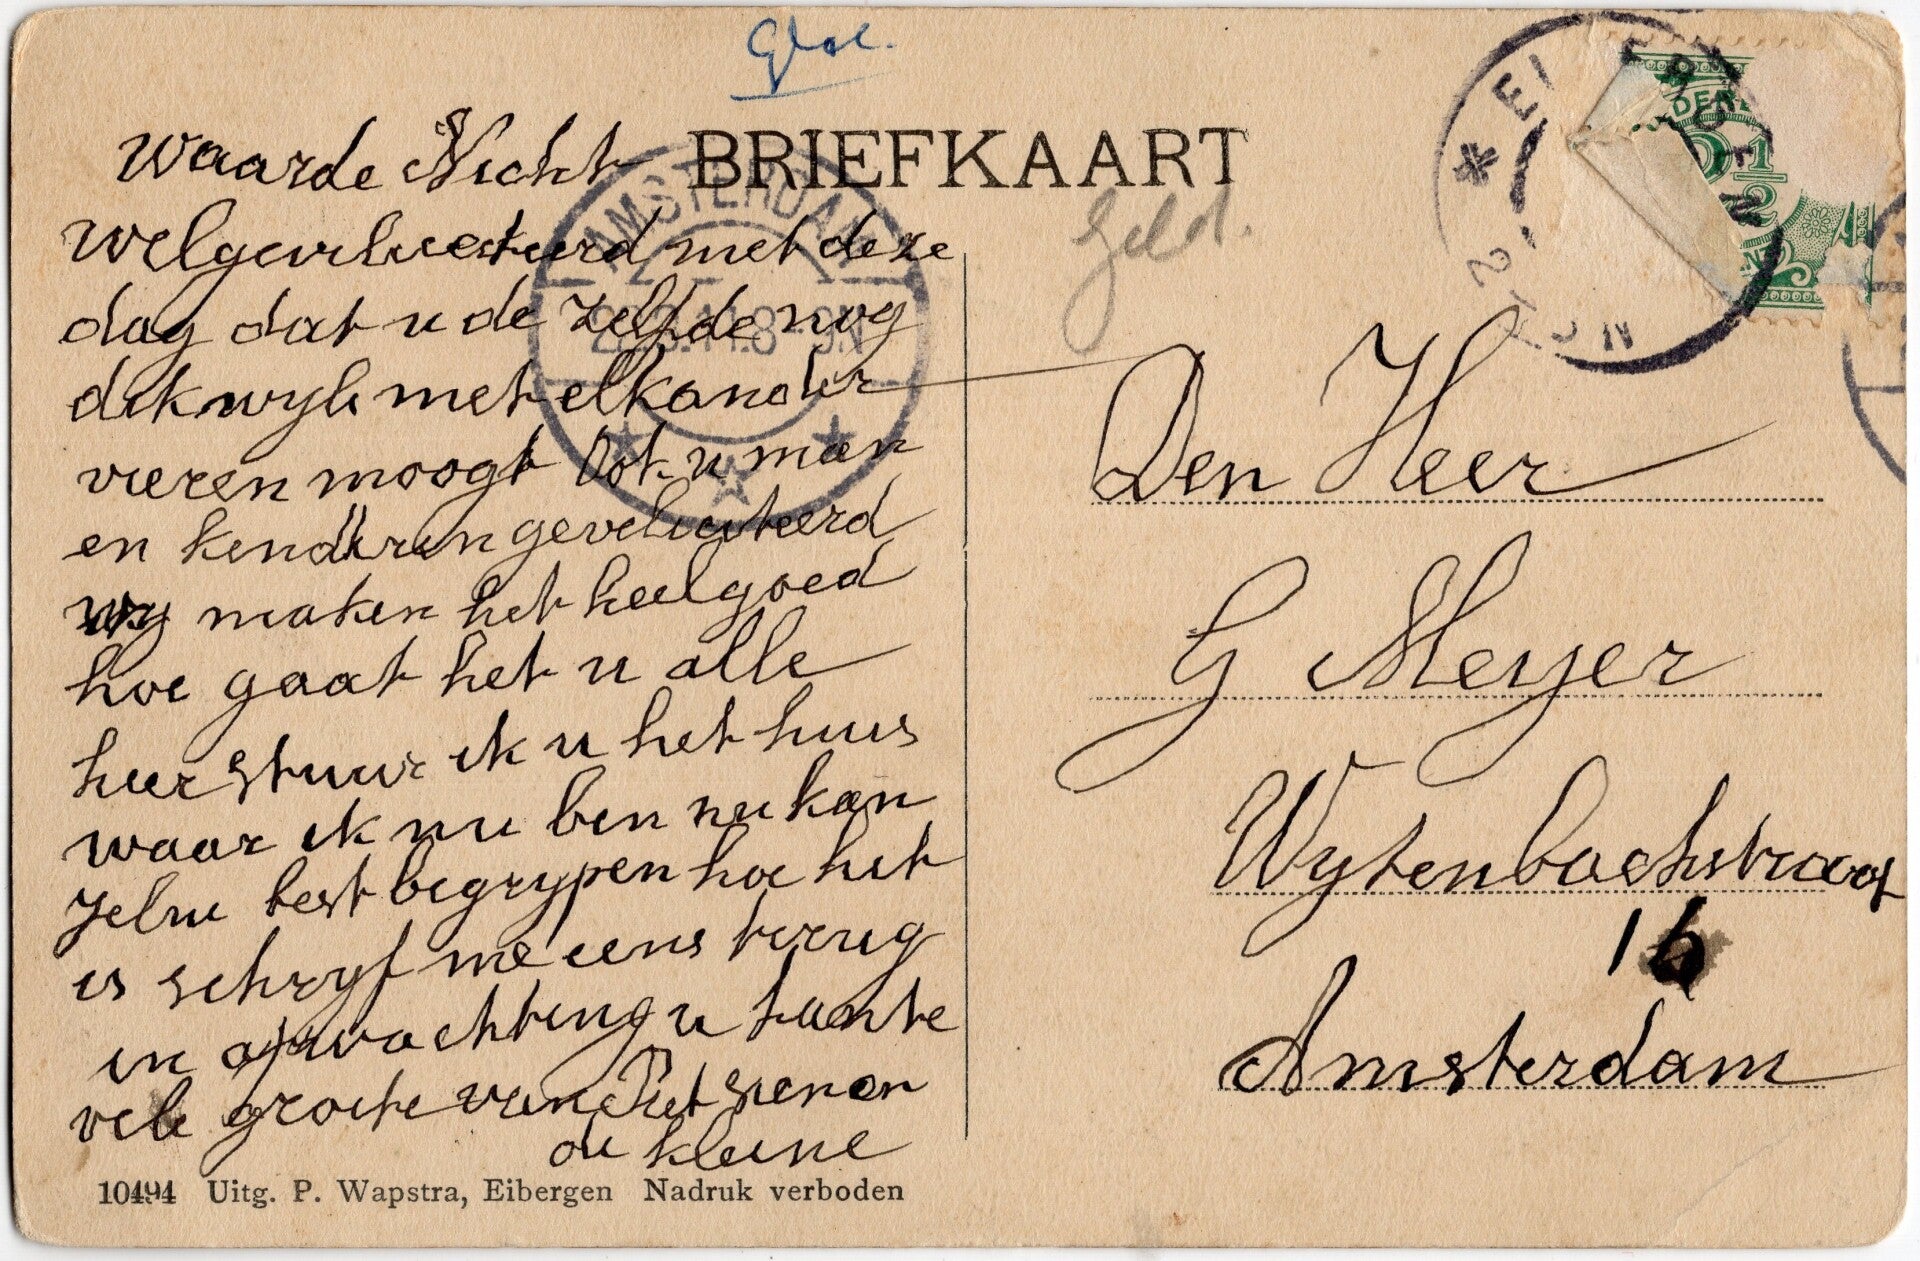 Gld.
BRIEFKAART
Geld.
Waarde Nicht
welgeveliesteerd met deze
dag dat u de zelfde nog
dikwyls met elkander
vieren moogt Ook u man
en kenderen gevelisiteerd
wy maken het heel goed
hoe gaat het u alle
hier stuur ik u het huis
waar ik nu ben nu kan
best begrypen hoe het
is schryf me eens terug
in opwachting u tante
vele groete van Piet en
de kleine
10494 Uitg. P. Wapstra, Eibergen Nadruk verboden
AMSTERDAM
8-9N
Den Heer
G Meyer
Wytenbachstraat
16
Amsterdam